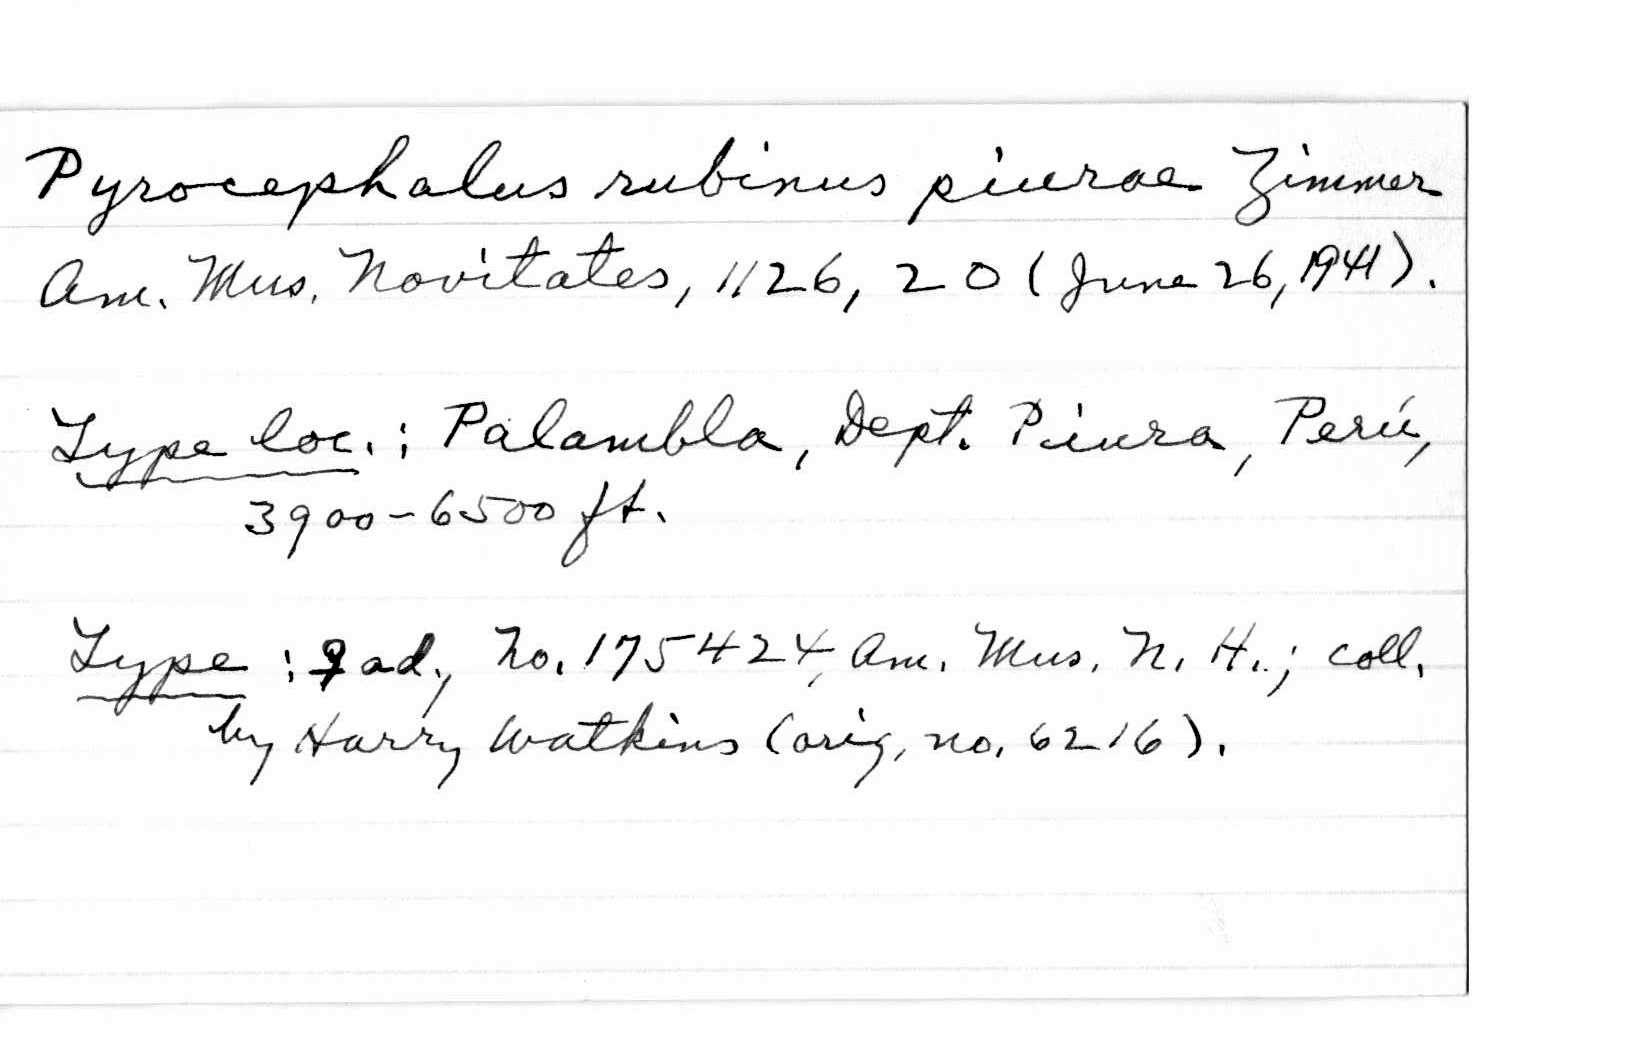 Pyrocephalus rubinus piurae Zimmer
Am. Mus. Novitates, 1126, 20 (June 26, 1941).
Type loc.: Palambla, Dept. Piura, Perú,
3900-6500 ft.
Type: ♀ ad., No. 175424, Am. Mus. N. H.; coll.
by Harry Watkins (orig. no. 6216).